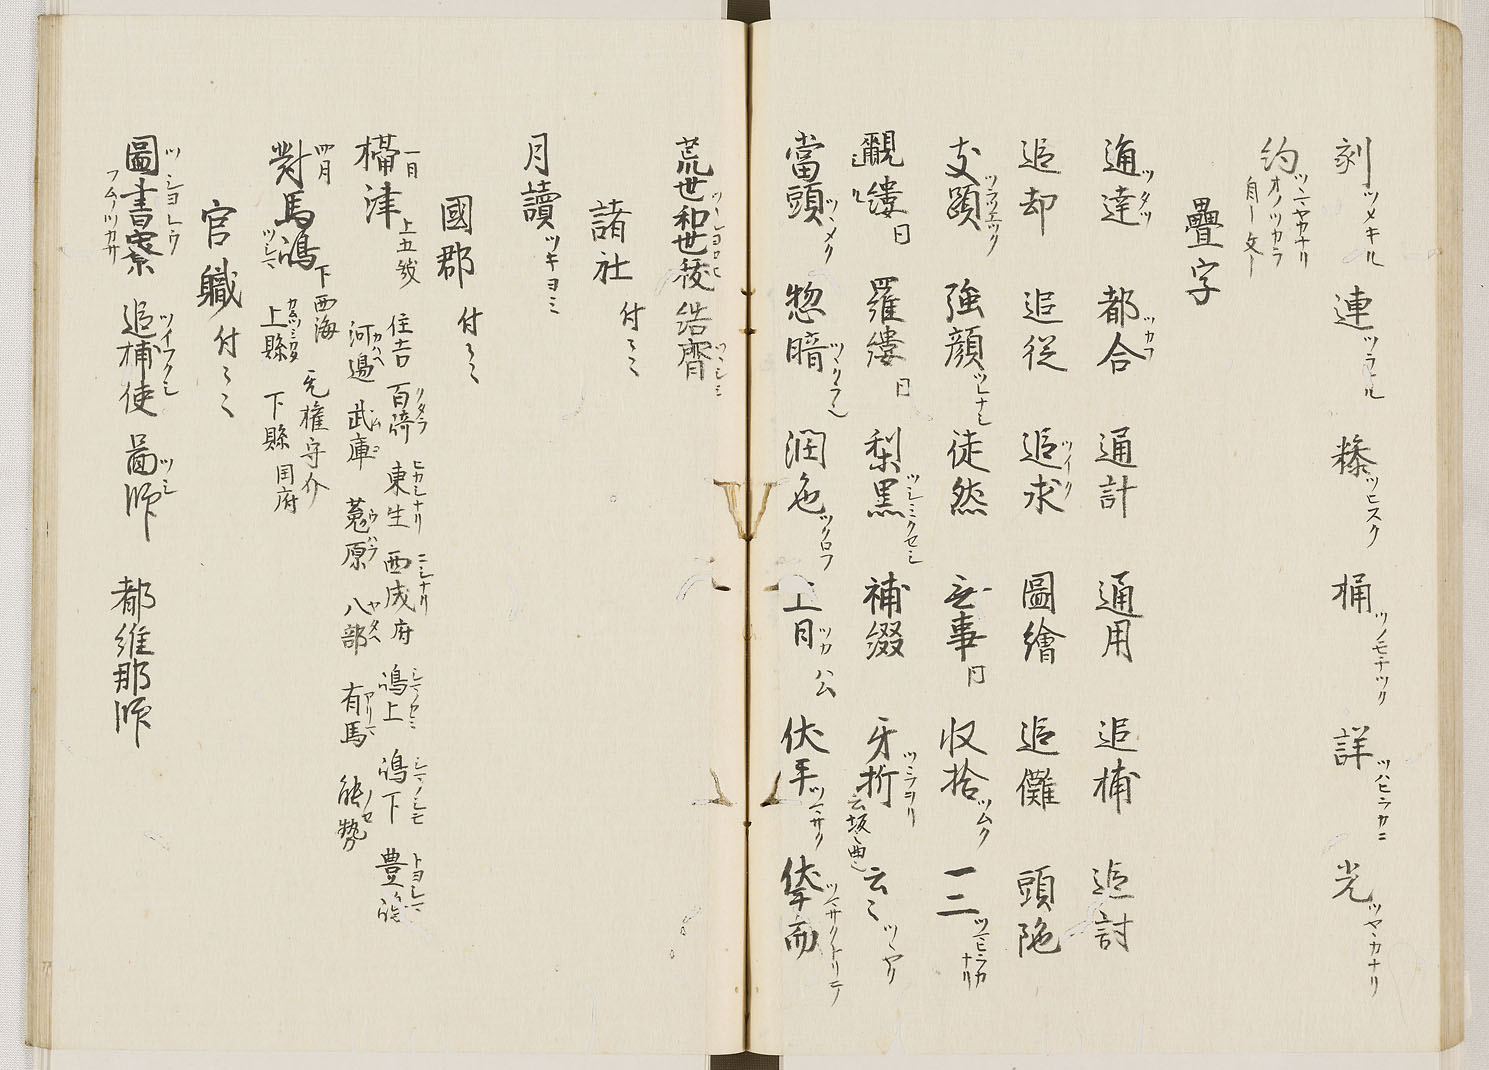 剡ツメキル 連ツラヒル 桊ツヒスク 桶ツノモチツリ 詳ツハヒラカニ 光ツヤヽカナリ
約ツヽマヤカナリ オノツカラ
疊字
通達ツタツ 都合ツカフ 通計 通用 追捕 追討
追却 追従 追求ツイク 圖繪 追儺 頭陁
支頥ツラツエツク 強顔ツレナシ 徒然 无事同 収拾ツムク 一二ツマヒラカナリ
覼縷同 羅縷同 梨黒ツシミクセシ 補綴 牙折ツミヲリ 云〻ツヽヤリ
當頭ツヽメク 惣暗ツヽクラシ 潤色ツクロフ 上月ツカ 公 伏羊ツマサク 伏而ツマサクトリテ
荒世和世後 結齊
諸社付〻
月讀ツキヨミ
國郡付〻
攝津上五 住吉 百濟クタラ 東生ヒカシナリ 西成府ニシナリ 嶋上シマノカミ 嶋下シマノシモ 豊嶋トヨシマ
河邊カハヘ 武庫ムコ 菟原ウハラ 八部ヤタヘ 有馬アリマ 能勢ノセ
對馬嶋ツシマ 下西海 无權守介
上縣カムツミアカタ 下縣国府
官職付〻
圖書寮ツシヨレウ フムノツカサ 追捕使ツイフクシ 啚師ツシ 都維那師